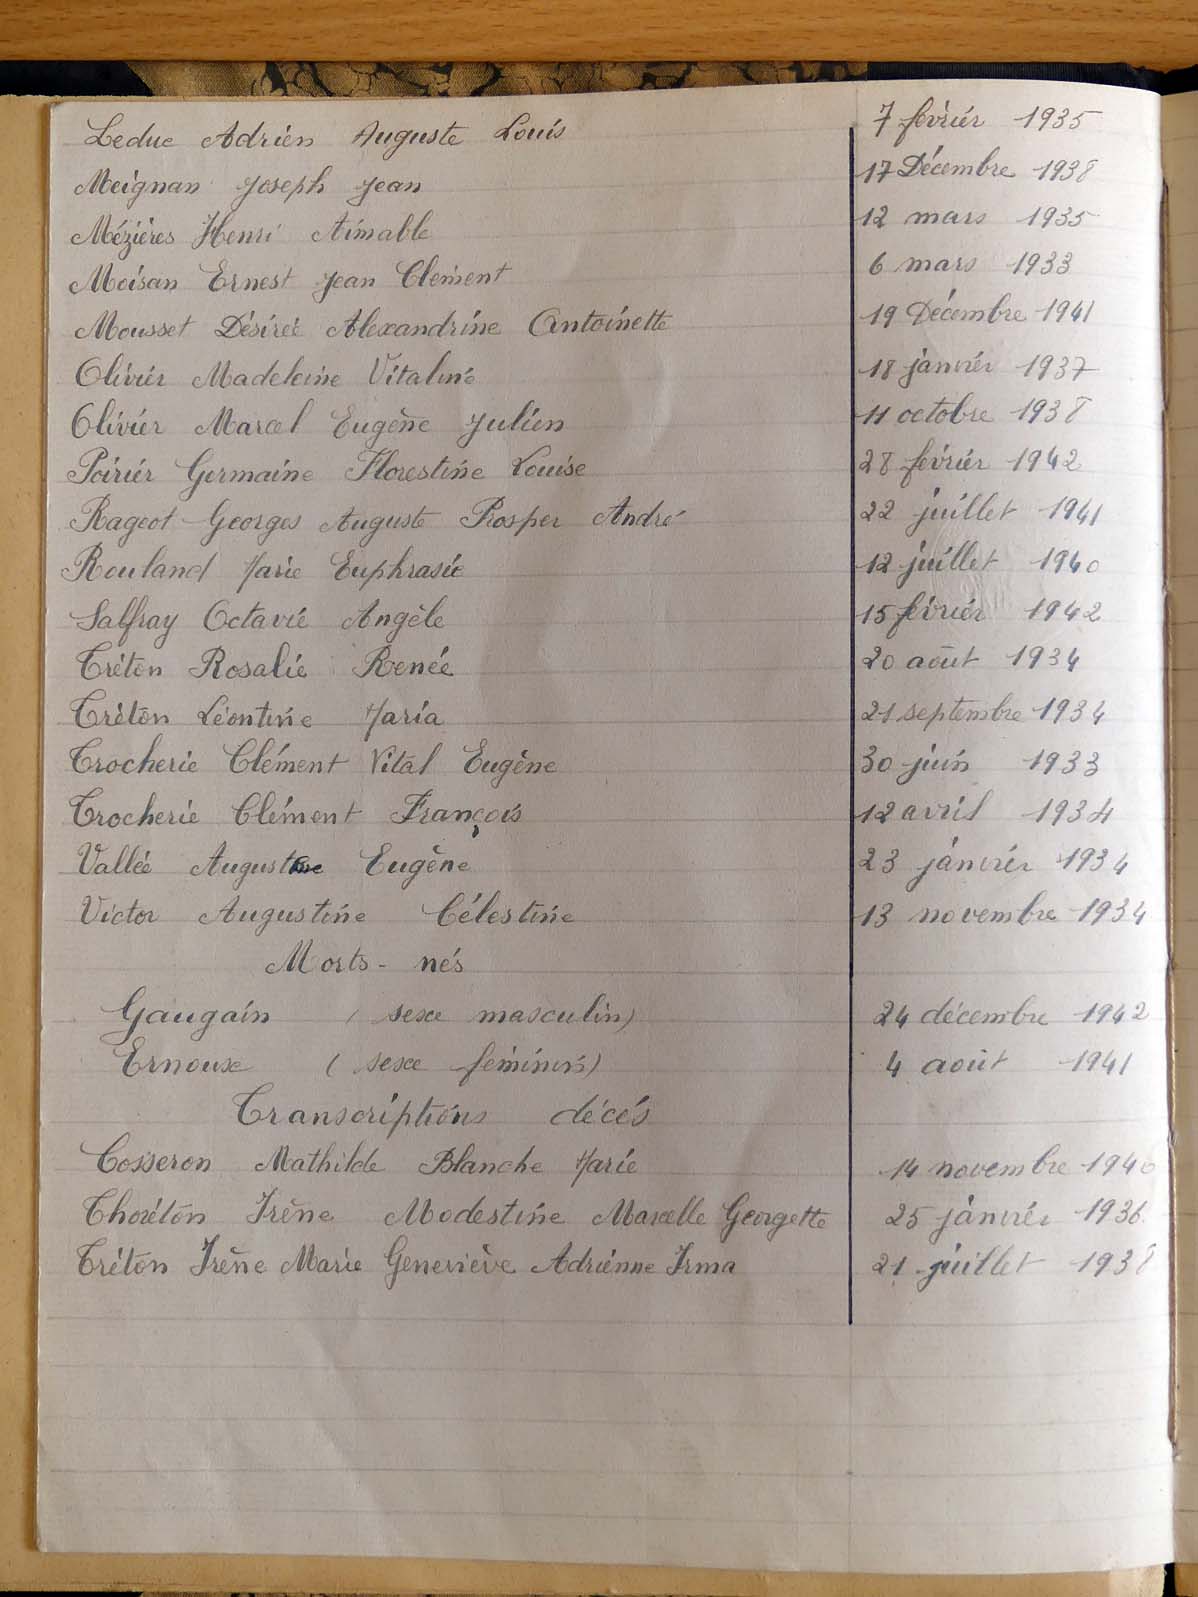 Leduc Adrien Auguste Louis 7 février 1935
Meignan Joseph Jean 17 Décembre 1938
Mézières Henri Aimable 12 mars 1935
Moisan Ernest Jean Clément 6 mars 1933
Mousset Désirée Alexandrine Antoinette 19 Décembre 1941
Olivier Madeleine Vitaline 18 janvier 1937
Olivier Marcel Eugène Julien 11 octobre 1938
Poirier Germaine Florestine Louise 28 février 1942
Rageot Georges Auguste Prosper André 22 juillet 1941
Rouland Marie Euphrasie 12 juillet 1940
Salfray Octavie Angèle 15 février 1942
Tréton Rosalie Renée 20 août 1934
Tréton Léontine Maria 21 septembre 1934
Trocherie Clément Vital Eugène 30 juin 1933
Trocherie Clément François 12 avril 1934
Vallée Auguste Eugène 23 janvier 1934
Victor Augustine Célestine 13 novembre 1934
Morts-nés
Gaugain (sexe masculin) 24 décembre 1942
Ernoux (sexe féminin) 4 août 1941
Transcriptions décés
Cosseron Mathilde Blanche Marie 14 novembre 1940
Thoréton Irène Modestine Marcelle Georgette 25 janvier 1936
Tréton Irène Marie Geneviève Adrienne Irma 21 juillet 1938